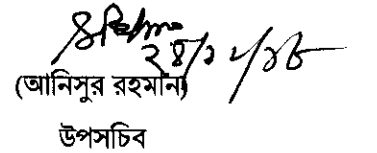 ২৪/১২/১৮
(আনিসুর রহমান)
উপসচিব